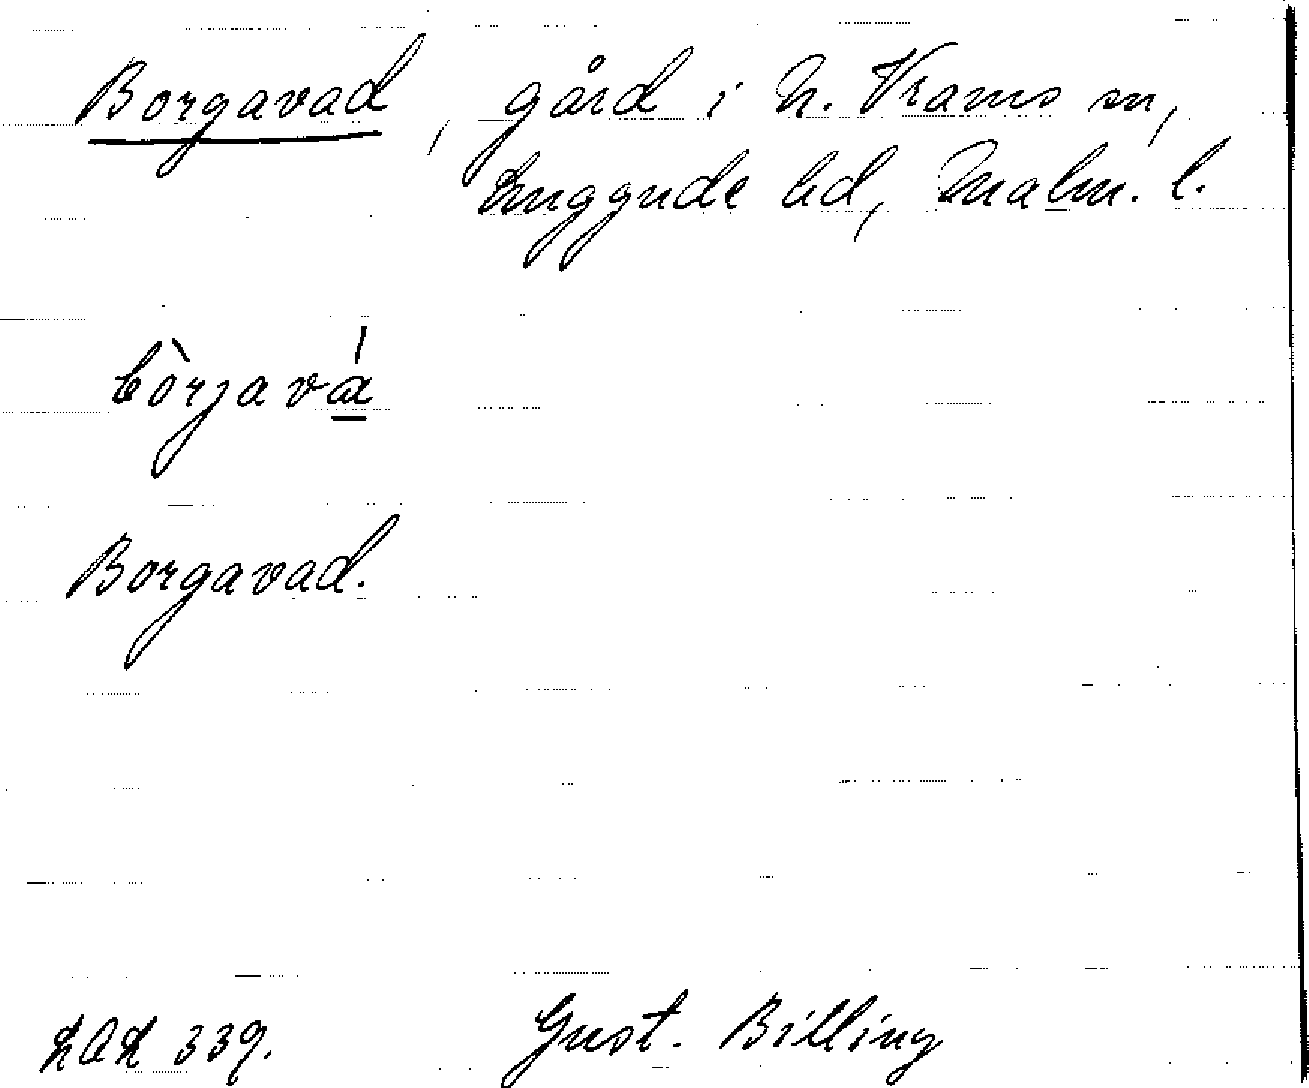 Borgavad, gård i N. Vrams sn,
Luggude hd, Malm. l.
bòrjavá
Borgavad.
LAL 339.
Gust. Billing